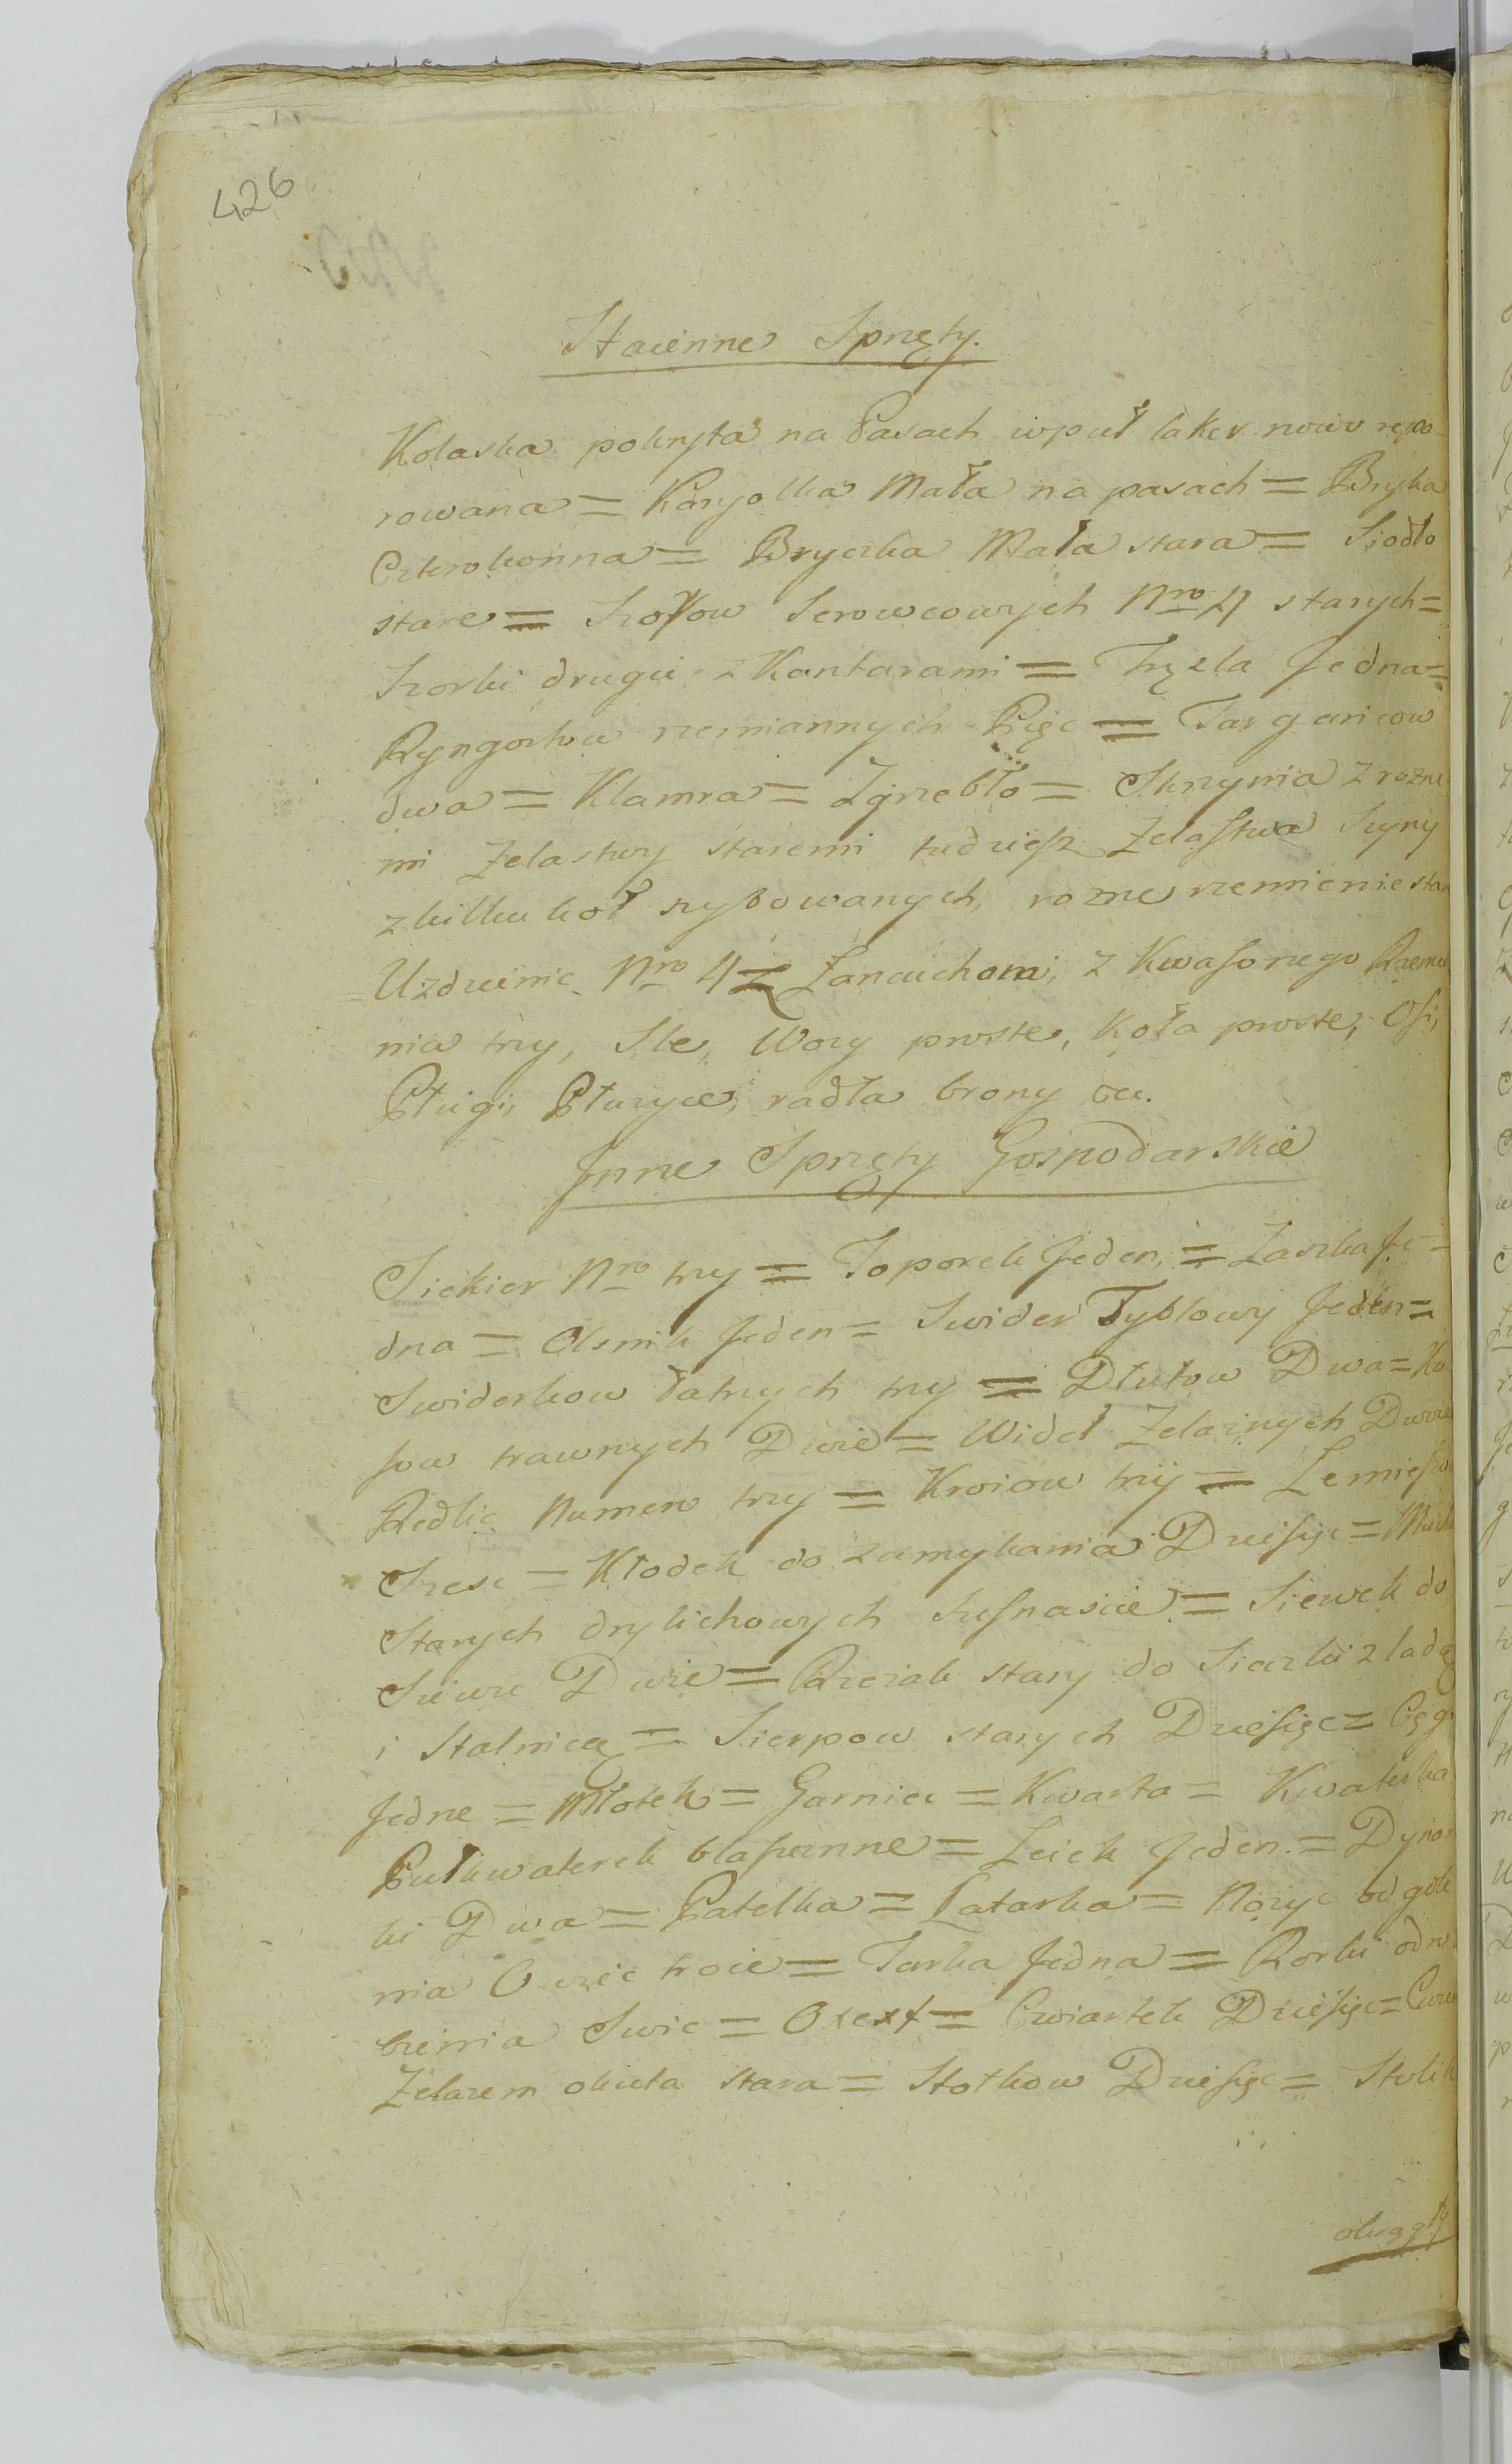 426
Staienne Sprzęty.
Kolaska pokryta na Pasach wpuł laker nowo repo-
rowana = Karyolka Mała na pasach = Bryka
Czterokonna = Bryczka Mała stara = Siodło
stare = Szorow Serowcowych Nro 4 starych =
Szorki drugie z Kantarami = Tręzla Jedna =
Ryngortow rzemiannych Pięc = Targancow
dwa = Klamra = Zgrzebło = Skrzynia z rozne
mi Zelastwy staremi tudziesz Zelastwa Szyny
z kilku koł szybowanych, rozne rzemienie star
Uzdzienic Nro 4 z Łancuchomi, z Kwasonego Rzemie
nia trzy, Sle, Wozy proste, Koła proste, Osi,
Pługi, Płuzyce, radła brony etc.
Jnne Sprzęty Gospodarskie
Siekier Nro trzy = Toporek Jeden = Zaszka Je =
dna = Osnik Jeden = Swider Tyblowy Jeden =
Swiderkow Łatnych trzy = Dłutow Dwa = Ko
sow trawnych Dwie = Wideł Zelaznych Dwie
Redlic Numero trzy = Kroiow trzy = Lemiesz
Szesc = Kłodek do zamykania Dziesięc = Miech
Starych drylichowych szesnascie = Siewek do
Siewu Dwie = Rzezak stary do Sieczki z ladą
i Stalnicą = Sierpow starych Dziesięc = Cęgi
Jedne = Młotek = Garniec = Kwarta = Kwaterka
Pułkwaterek blaszanne = Leiek Jeden = Dynar
ki Dwa = Patelka = Latarka = Nozyc od gole
nia Owiec troie = Tarka Jedna = Rorki odro
bienia Swic = Oxext = Cwiartek Dziesięc =
Zelazem okuta stara = Stołkow Dziesięc = Stolik